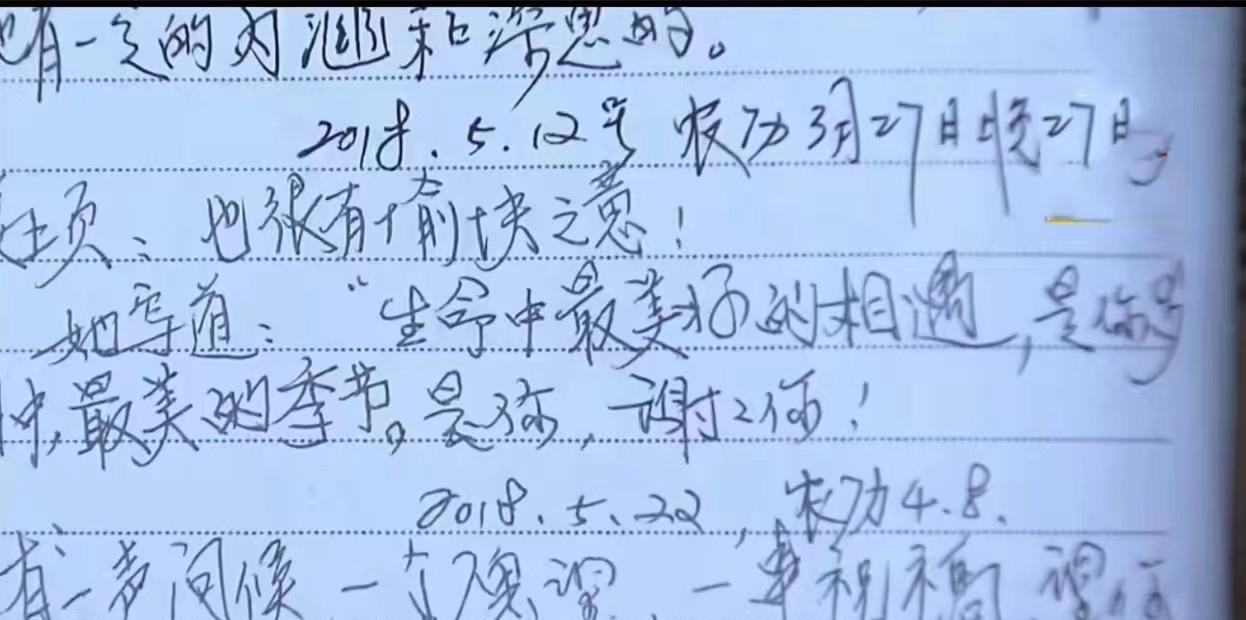 有一定的内涵和深思的。
2018.5.12号 农历3月27日晚27日
也很有愉快之意!
她写道:“生命中最美好的相遇,是你
中,最美的季节。是你,谢2你!
2018.5.22,农历4.8.
有一声问候 一 一 祝福